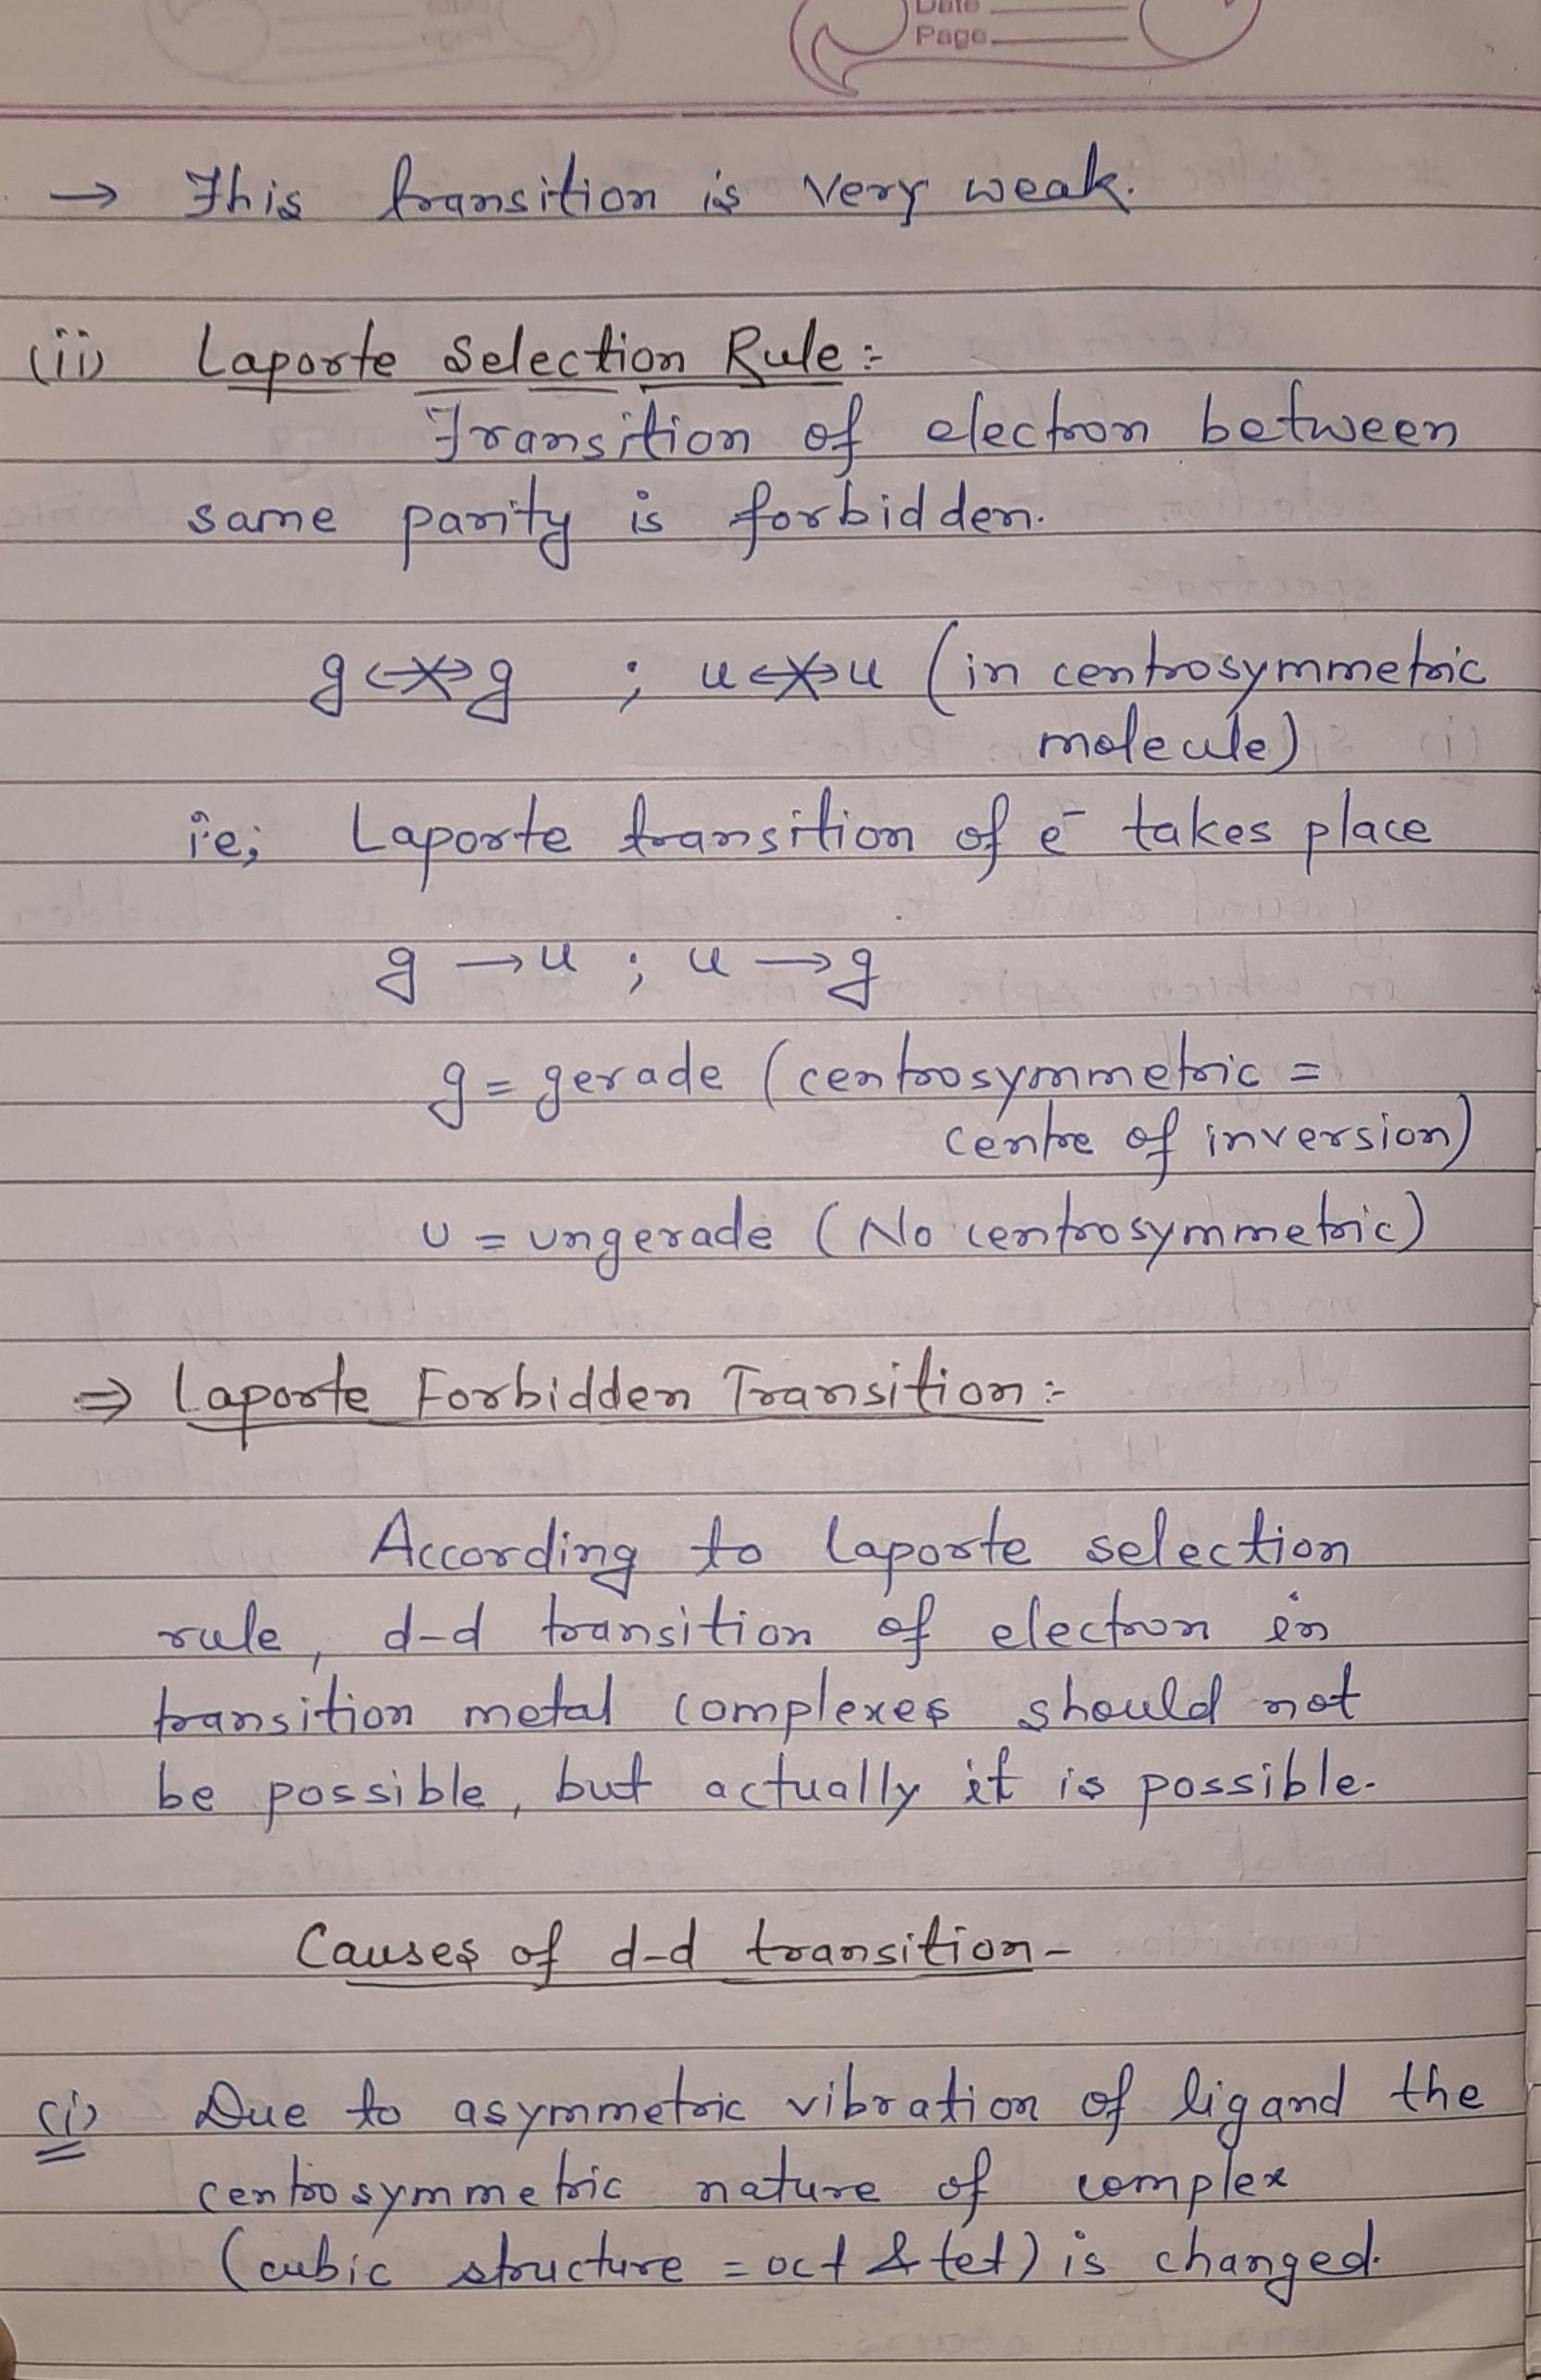 Date
Page
→ This transition is very weak.
(ii) Laporte Selection Rule :-
Transition of electron between
same parity is forbidden.
g <-x-> g ; u <-x-> u (in centrosymmetric
molecule)
i.e; Laporte transition of e⁻ takes place
g → u ; u → g
g = gerade (centrosymmetric =
centre of inversion)
u = ungerade (No centrosymmetric)
⇒ Laporte Forbidden Transition :-
According to laporte selection
rule, d-d transition of electron in
transition metal complexes should not
be possible, but actually it is possible.
Causes of d-d transition -
(i) Due to asymmetric vibration of ligand the
centrosymmetric nature of complex
(cubic structure = oct & tet) is changed.